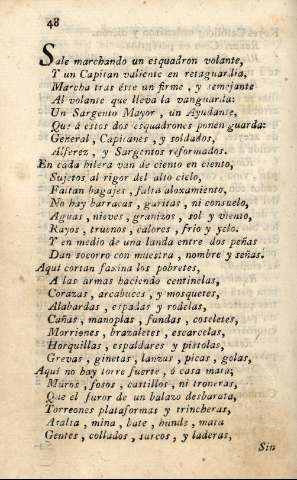 48
Sale marchando un esquadron volante,
Y un Capitan valiente en retaguardia,
Marcha tras éste un firme, y semejante
Al volante que lleva la vanguarda:
Un Sargento Mayor, un Ayudante,
Que á estos dos esquadrones ponen guarda:
General, Capitanes, y soldados,
Alferez, y Sargentos reformados.
En cada hilera van de ciento en ciento,
Sujetos al rigor del alto cielo,
Faltan bagajes, falta aloxamiento,
No hay barracas, garitas, ni consuelo,
Aguas, nieves, granizos, sol y viento,
Rayos, truenos, calores, frio y yelo.
Y en medio de una landa entre dos peñas
Dan socorro con muestra, nombre y señas.
Aqui cortan faxina los pobretes,
A las armas haciendo centinelas,
Corazas, arcabuces, y mosquetes,
Alabardas, espadas y rodelas,
Cañas, manoplas, fundas, coseletes,
Morriones, brazaletes, escarcelas,
Horquillas, espaldares y pistolas,
Grevas, ginetas, lanzas, picas, golas,
Aqui no hay torre fuerte, ó casa mata;
Muros, fosos, castillos, ni troneras,
Que el furor de un balazo desbarata,
Torreones plataformas y trincheras,
Asalta, mina, bate, hunde, mata
Gentes, collados, surcos, y laderas,
Sin